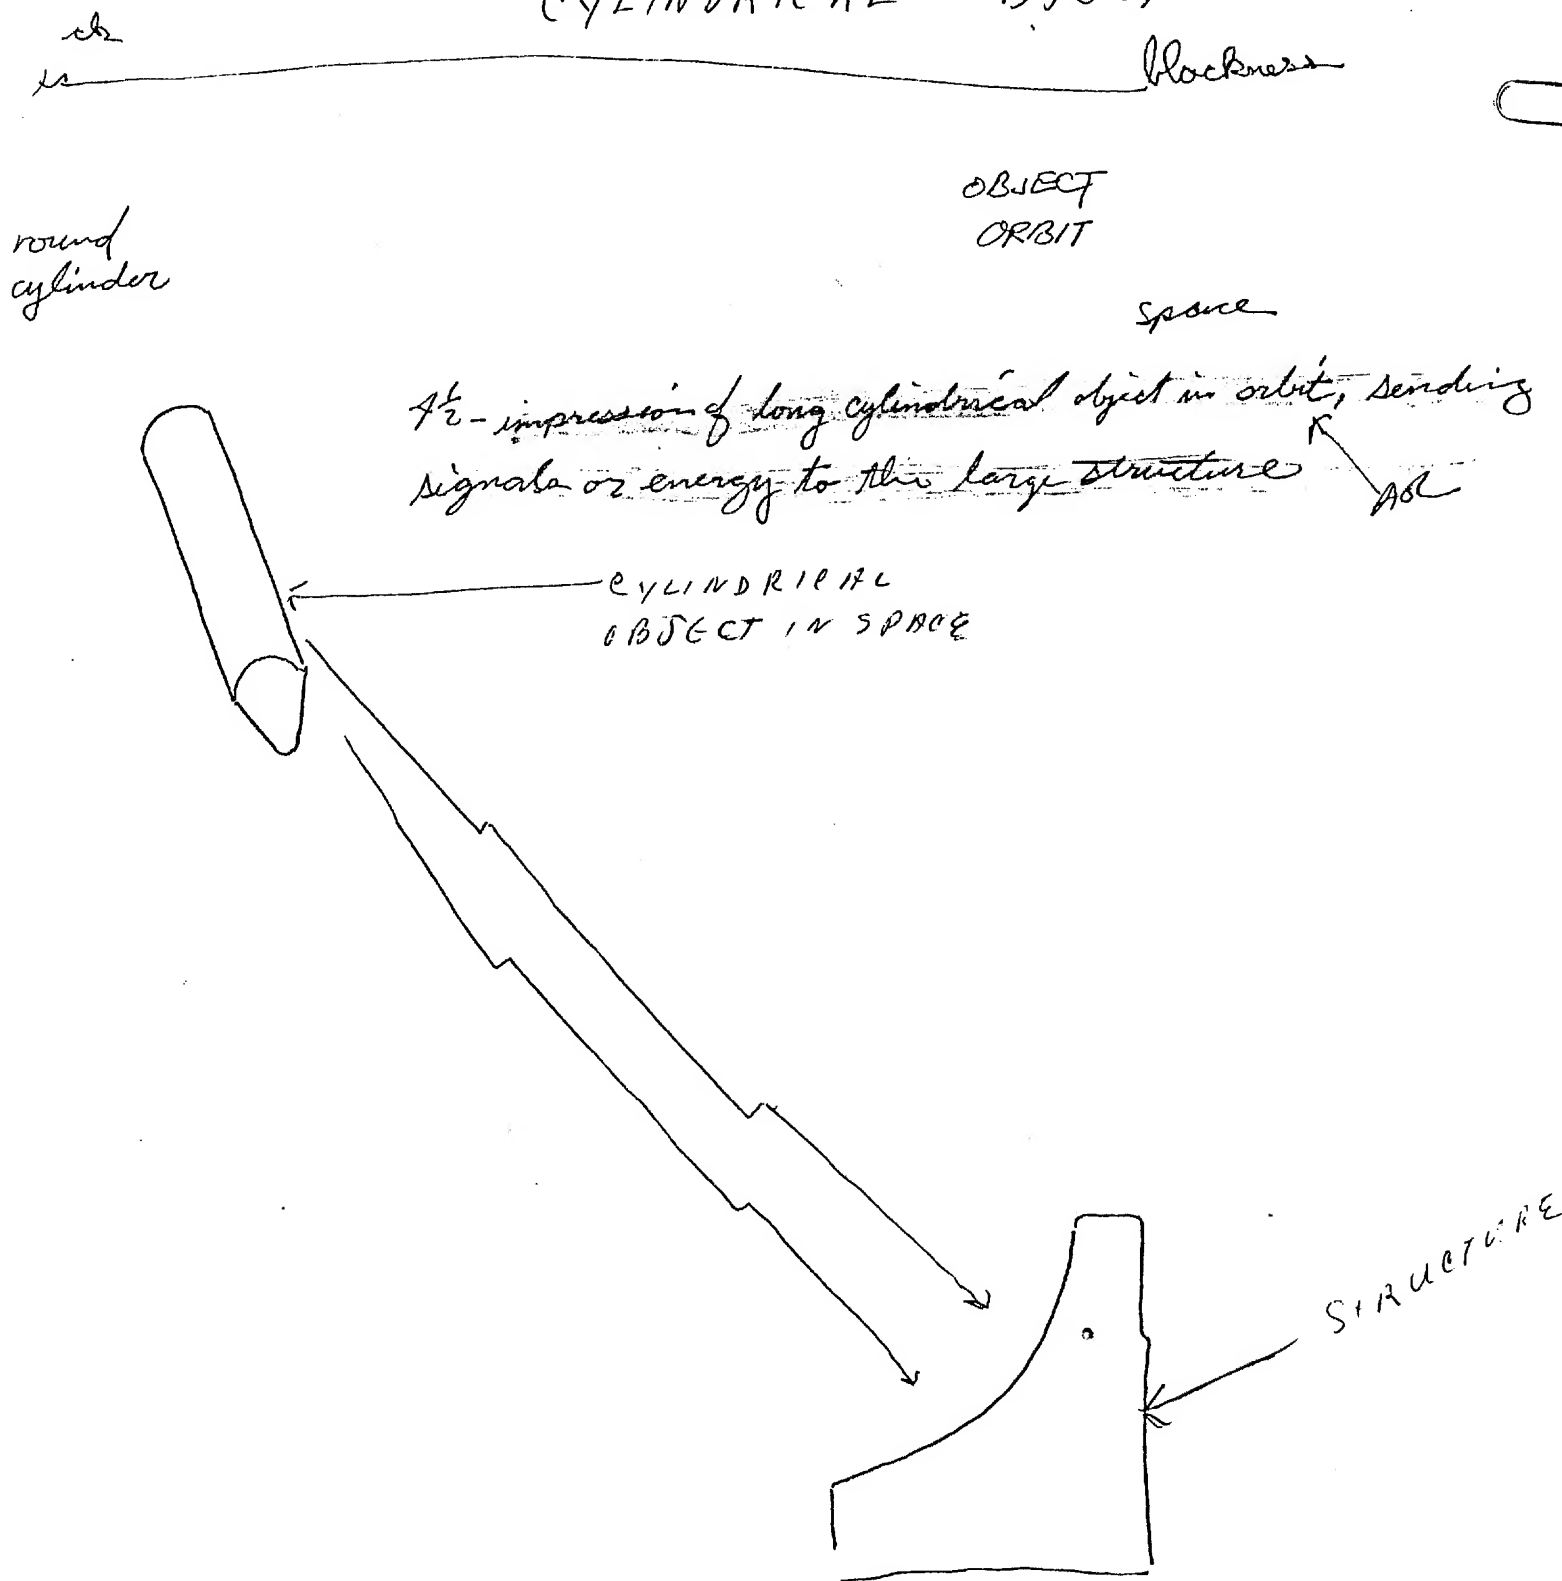 CYLINDRICAL
blackness
OBJECT
ORBIT
round
cylinder
space
4½ - impression of long cylindrical object in orbit, sending
signals or energy to the large structure
AOL
CYLINDRICAL
OBJECT IN SPACE
STRUCTURE